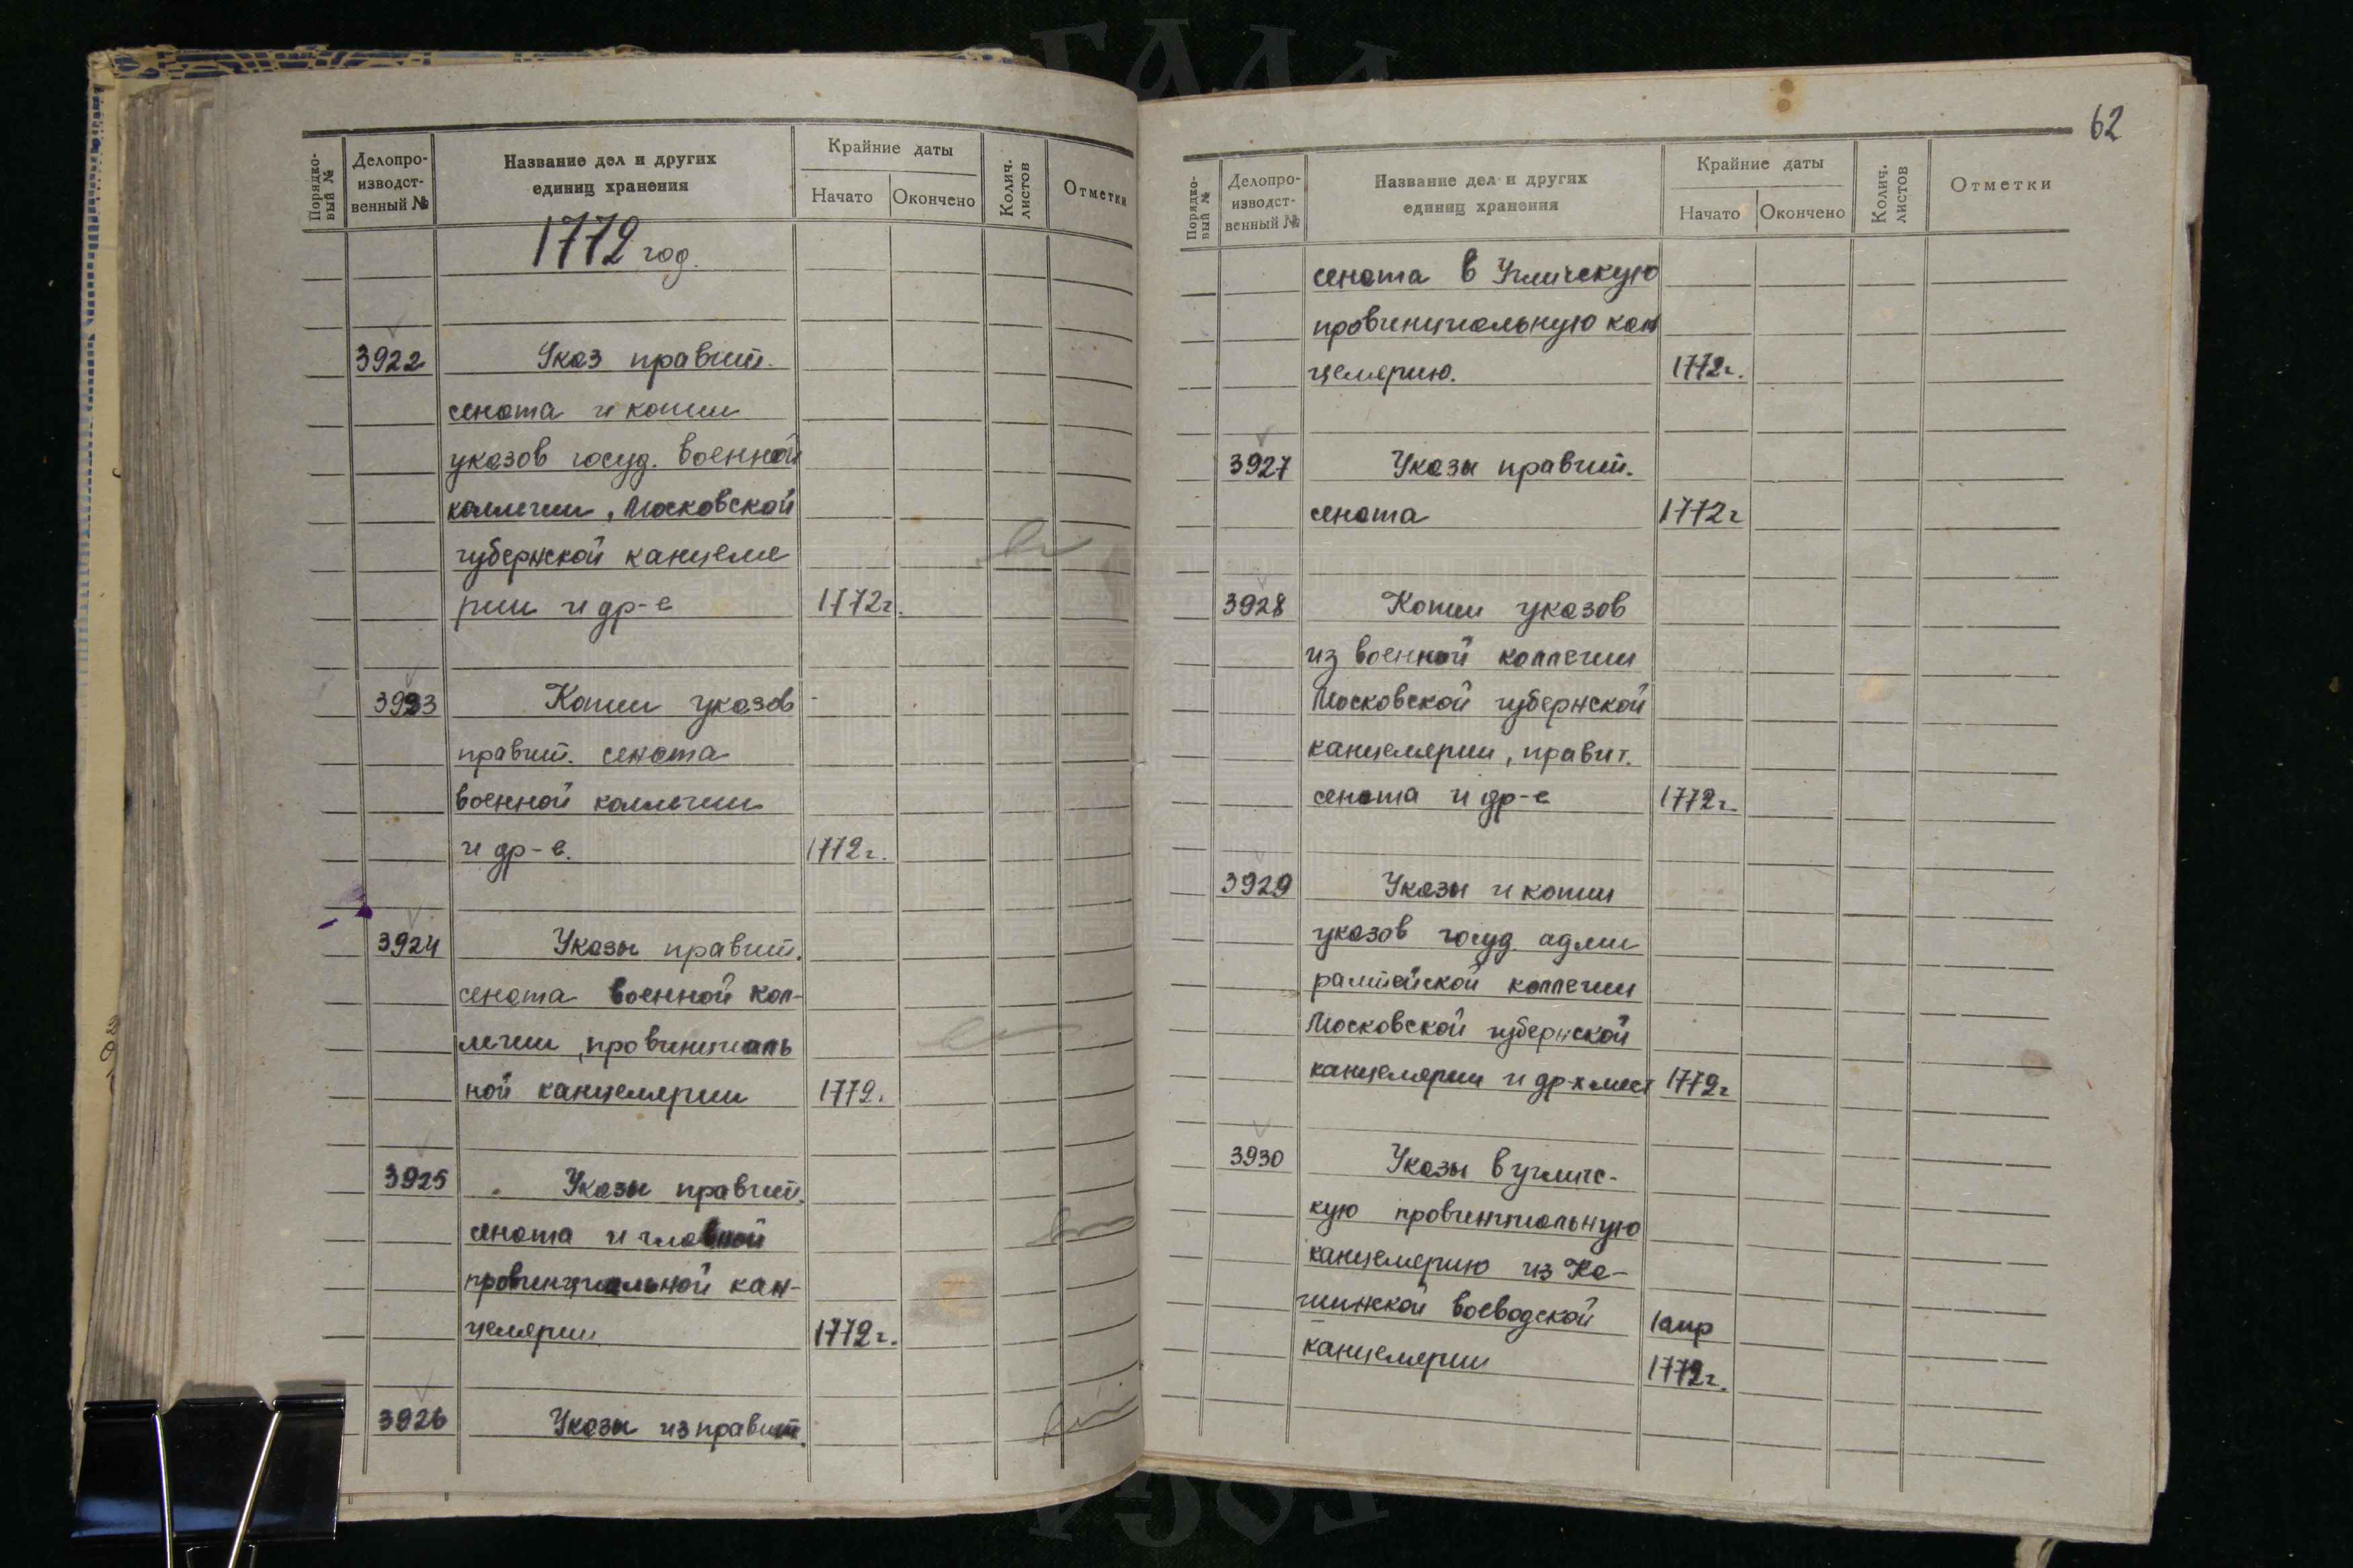 Порядко-
вый №
Делопро-
изводст-
венный №
Название дел и других
единиц хранения
Крайние даты
Начато
Окончено
Колич.
листов
Отметки
1772 год.
3922 Указ правит.
сената и копии
указов госуд. военной
коллегии, Московской
губернской канцеля
рии и др-е 1772г.
3923 Копии указов
правит. сената
военной коллегии
и др-е. 1772г.
3924 Указы правит.
сената военной кол-
легии, провинциаль
ной канцелярии 1772.
3925 Указы правит.
сената и главной
провинциальной кан-
целярии 1772г.
3926 Указы из правит.
62
Порядко-
вый №
Делопро-
изводст-
венный №
Название дел и других
единиц хранения
Крайние даты
Начато
Окончено
Колич.
листов
Отметки
сената в Угличскую
провинциальную кан
целярию. 1772г.
3927 Указы правит.
сената 1772г
3928 Копии указов
из военной коллегии
Московской губернской
канцелярии, правит.
сената и др-е 1772г.
3929 Указы и копии
указов госуд. адми
ралтейской коллегии
Московской губернской
канцелярии и др-х мест 1772г
3930 Указы в угличс-
кую провинциальную
канцелярию из Ка-
шинской воеводской 1 апр
канцелярии 1772г.